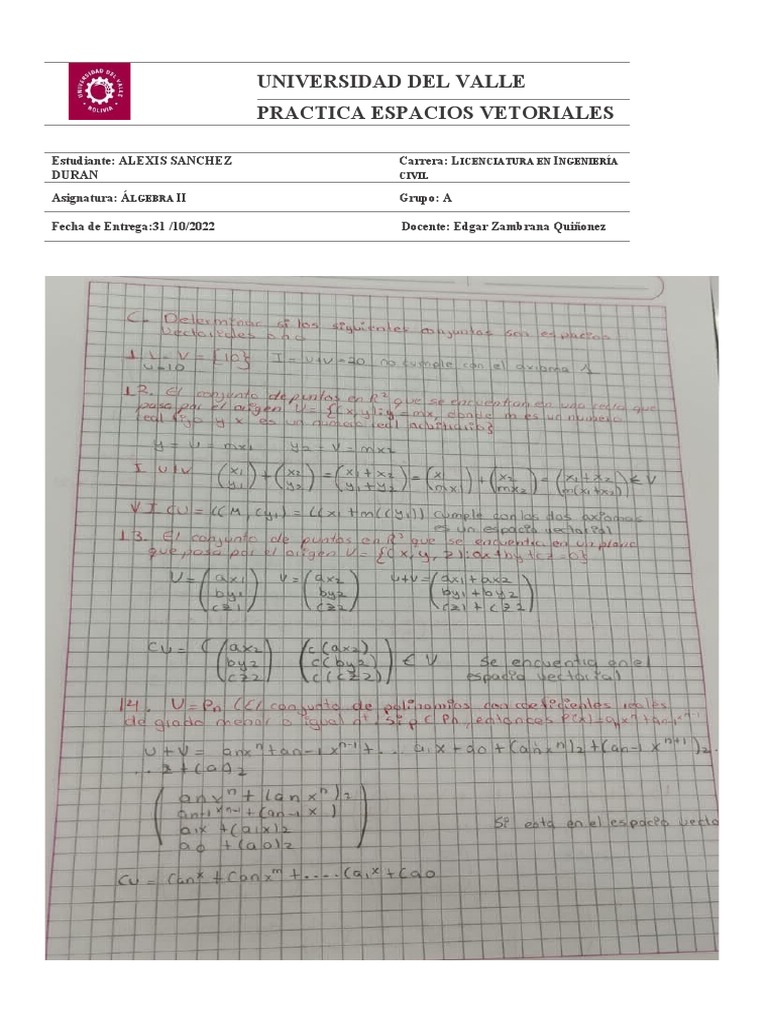 UNIVERSIDAD DEL VALLE
BOLIVIA
UNIVERSIDAD DEL VALLE
PRACTICA ESPACIOS VETORIALES
Estudiante: ALEXIS SANCHEZ DURAN
Carrera: LICENCIATURA EN INGENIERÍA CIVIL
Asignatura: ÁLGEBRA II
Grupo: A
Fecha de Entrega:31 /10/2022
Docente: Edgar Zambrana Quiñonez
C. Determinar si los siguientes conjuntos son espacios
vectoriales o no
V = {10} I = u+v=20 no cumple con el axioma 1
u=10
1.2. El conjunto de puntos en R² que se encuentran en una recta que
pasa por el origen V = {(x,y):y=mx, donde m es un numero
real fijo y x es un numero real arbitrario}
y = u = mx1 y2 = v = mx2
I u+v (x1 y1) + (x2 y2) = (x1+x2 y1+y2) = (x1 mx1) + (x2 mx2) = (x1+x2 m(x1+x2)) ∈ V
VI cu = cumple con los dos axiomas
es un espacio vectorial
1.3. El conjunto de puntos en R³ que se encuentra en un plano
que pasa por el origen V = {(x,y,z):ax+by+cz=0}
U = (ax1 by1 cz1) V = (ax2 by2 cz2) u+v = (ax1+ax2 by1+by2 cz1+cz2)
cu = c (ax2 by2 cz2) (c(ax2) c(by2) c(cz2)) ∈ V se encuentra en el
espacio vectorial
14. V = Pn (El conjunto de polinomios con coeficientes reales
de grado menor o igual si p ∈ Pn, entonces P(x)=
u+v = anxⁿ+an-1xⁿ⁻¹+... a1x+a0+(anxⁿ)2+(an-1xⁿ⁺¹)2.
...2+(a0)2
anxⁿ+(anxⁿ)2
a1x+(a1x)2
a0+(a0)2
Si esta en el espacio vecto